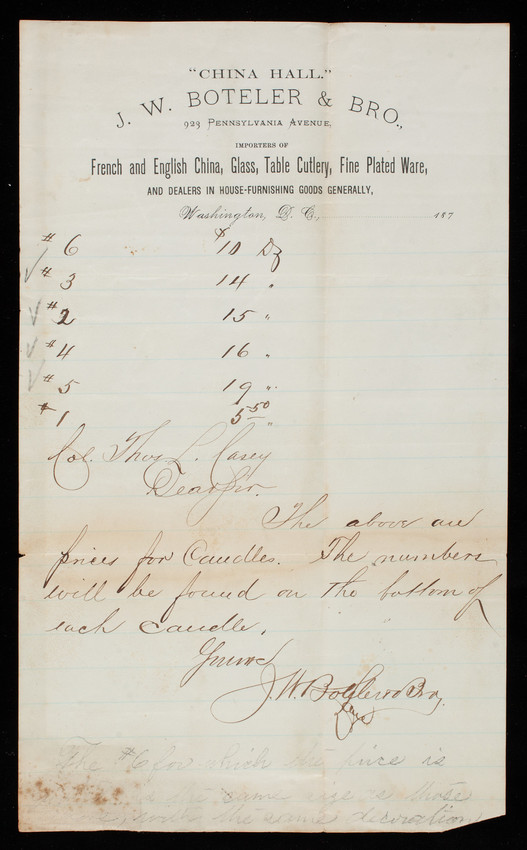 "CHINA HALL."
J. W. BOTELER & BRO.,
923 PENNSYLVANIA AVENUE,
IMPORTERS OF
French and English China, Glass, Table Cutlery, Fine Plated Ware,
AND DEALERS IN HOUSE-FURNISHING GOODS GENERALLY,
Washington, D. C., 187
#6 $10 Dz
#3 14 "
#2 15 "
#4 16 "
#5 19 "
#1 5 50 "
Col. Thos L. Casey
Dear Sir.
The above are
prices for Candles. The numbers
will be found on the bottom of
each candle.
J. W. Boteler & Bro,
The #6 for which the price is
same size as those
the same decoration